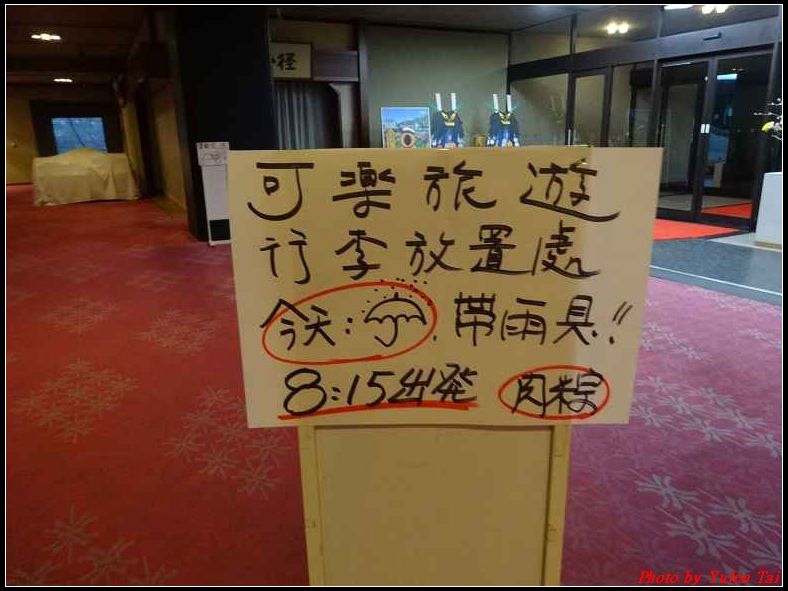 小径
可楽旅遊
行李放置處
今天: ,帶雨具!!
8:15出発 肉粽
Photo by Yukis Tai